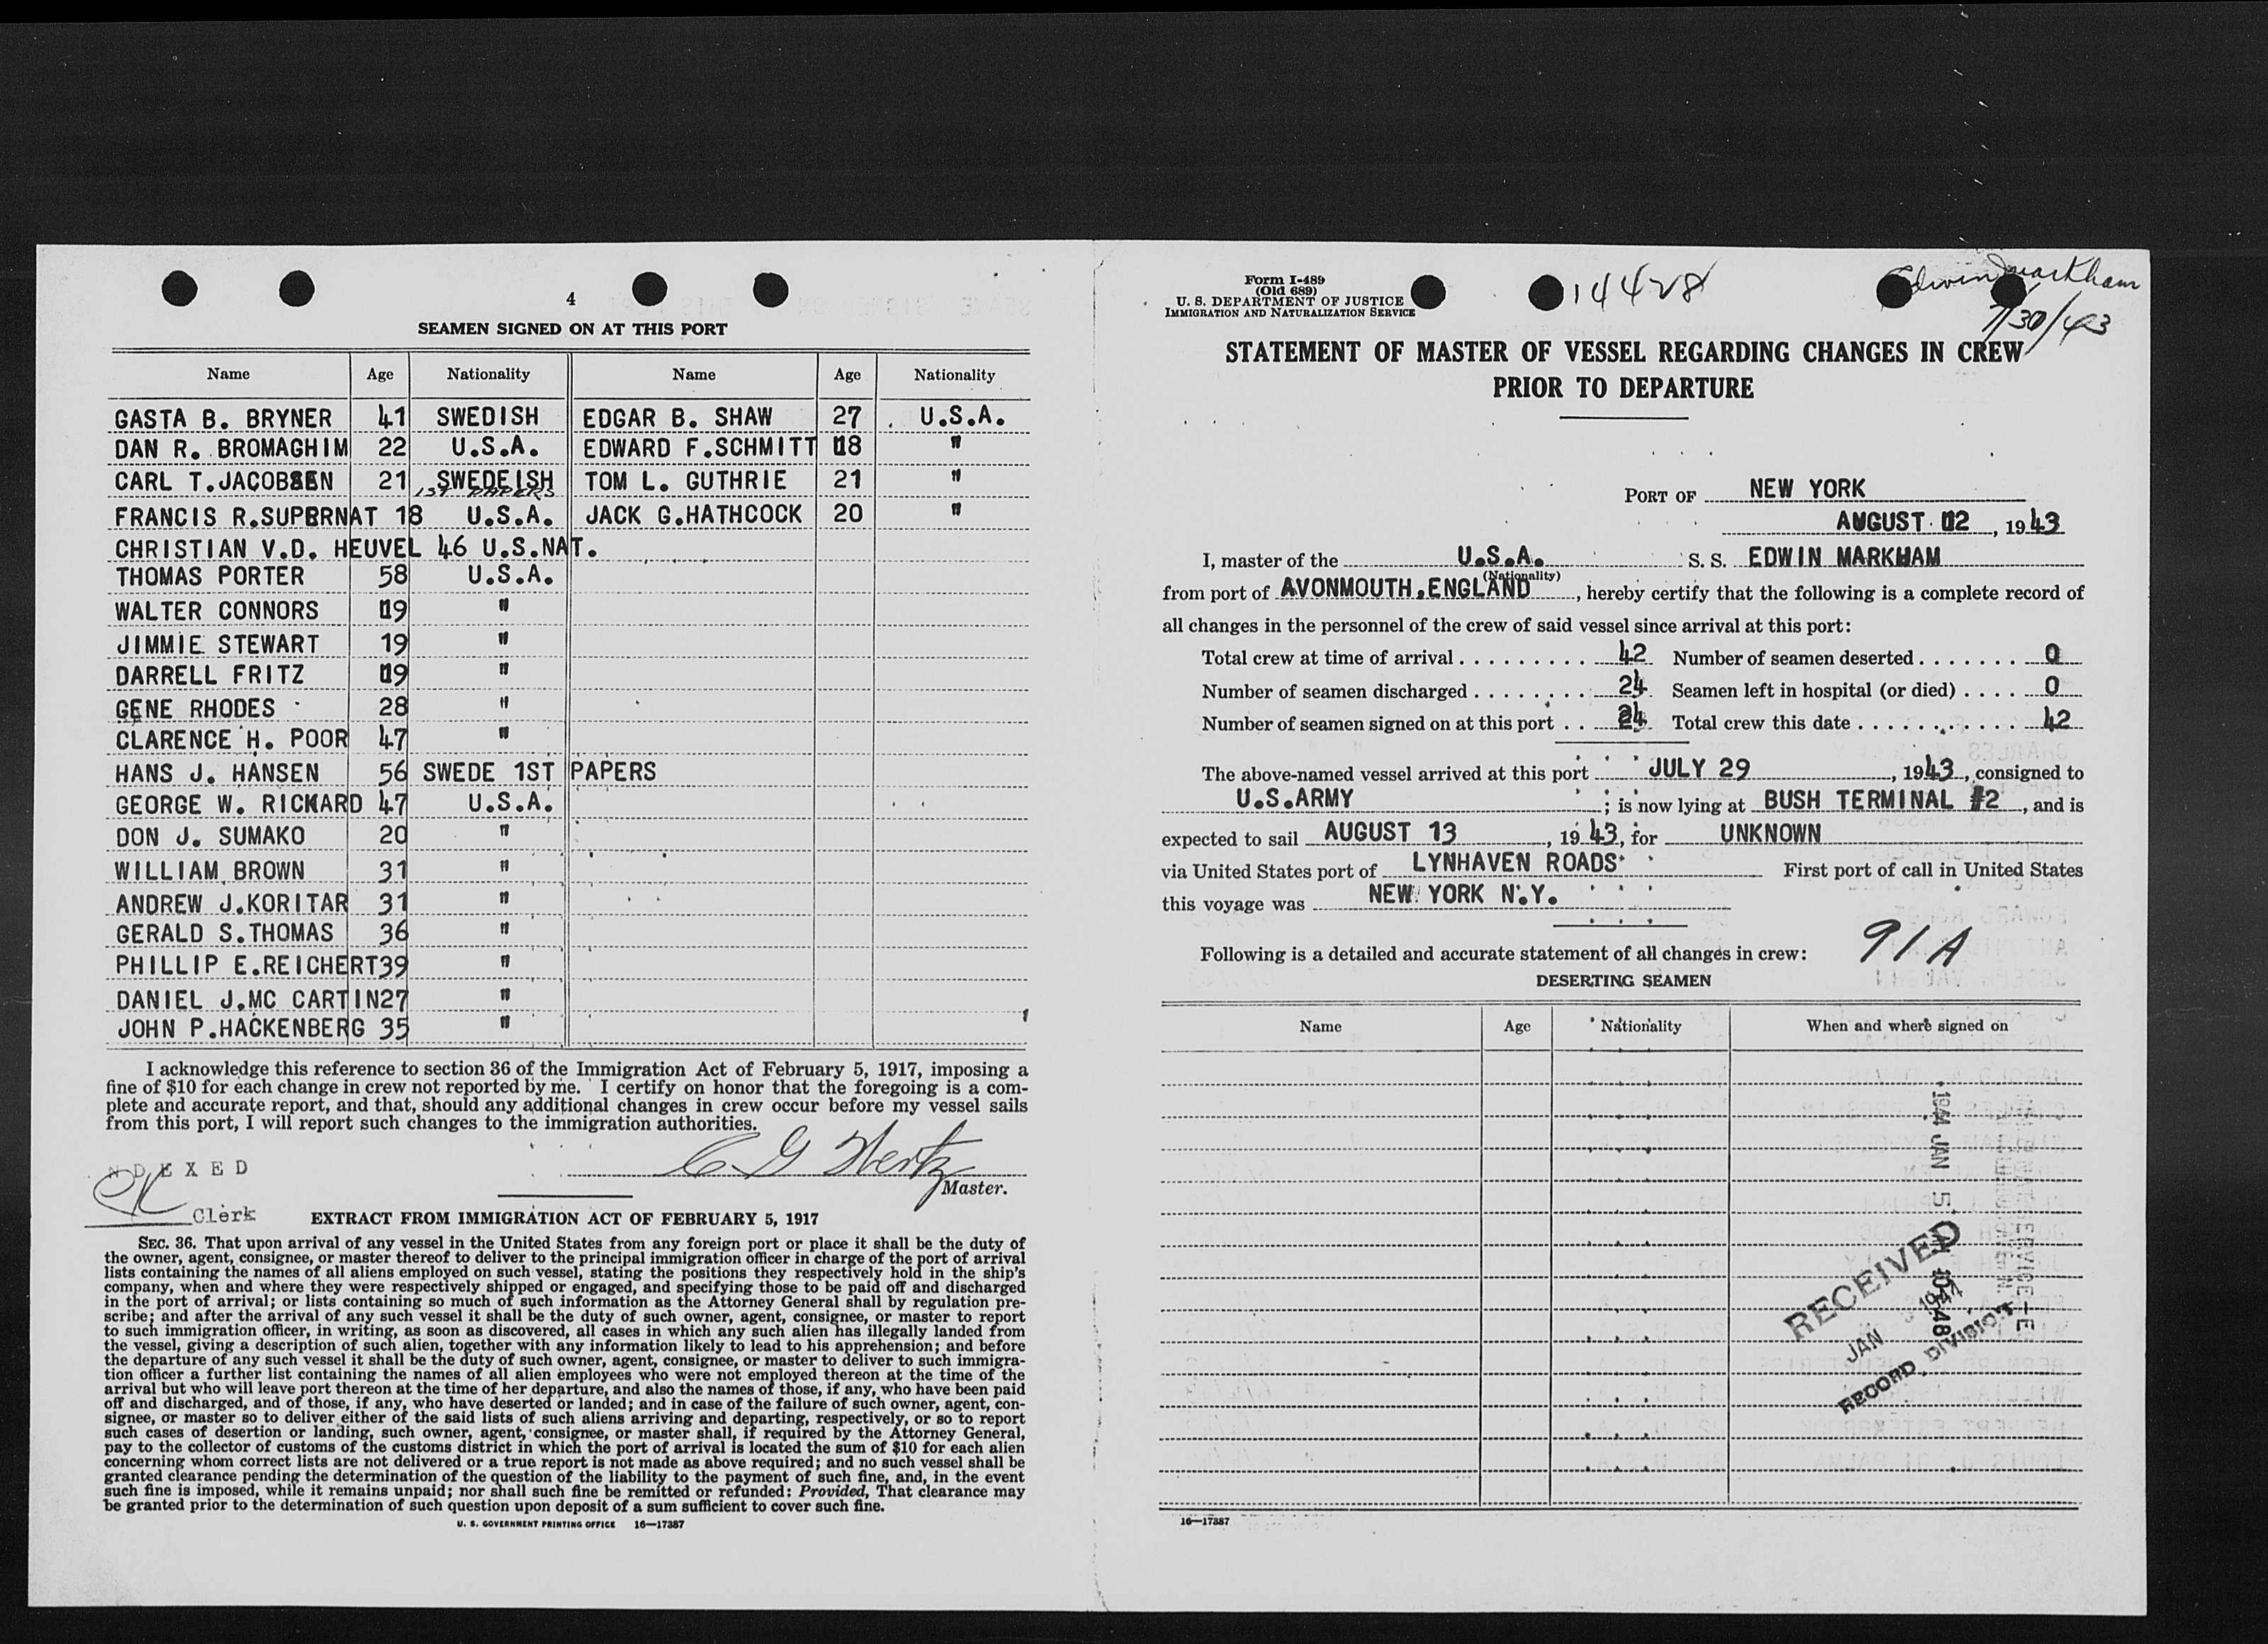 4
SEAMEN SIGNED ON AT THIS PORT
Name Age Nationality Name Age Nationality
GASTA B. BRYNER 41 SWEDISH EDGAR B. SHAW 27 U.S.A.
DAN R. BROMAGHIM 22 U.S.A. EDWARD F.SCHMITT 18 "
CARL T.JACOBSEN 21 SWEDEISH TOM L. GUTHRIE 21 "
1ST PAPERS
FRANCIS R.SUPERNAT 18 U.S.A. JACK G.HATHCOCK 20 "
CHRISTIAN V.D. HEUVEL 46 U.S.NAT.
THOMAS PORTER 58 U.S.A.
WALTER CONNORS 19 "
JIMMIE STEWART 19 "
DARRELL FRITZ 19 "
GENE RHODES 28 "
CLARENCE H. POOR 47 "
HANS J. HANSEN 56 SWEDE 1ST PAPERS
GEORGE W. RICKARD 47 U.S.A.
DON J. SUMAKO 20 "
WILLIAM BROWN 31 "
ANDREW J.KORITAR 31 "
GERALD S.THOMAS 36 "
PHILLIP E.REICHERT 39 "
DANIEL J.MC CARTIN 27 "
JOHN P.HACKENBERG 35 "
I acknowledge this reference to section 36 of the Immigration Act of February 5, 1917, imposing a
fine of $10 for each change in crew not reported by me. I certify on honor that the foregoing is a com-
plete and accurate report, and that, should any additional changes in crew occur before my vessel sails
from this port, I will report such changes to the immigration authorities.
C G Hertz
Master.
NDEXED
Clerk
EXTRACT FROM IMMIGRATION ACT OF FEBRUARY 5, 1917
SEC. 36. That upon arrival of any vessel in the United States from any foreign port or place it shall be the duty of
the owner, agent, consignee, or master thereof to deliver to the principal immigration officer in charge of the port of arrival
lists containing the names of all aliens employed on such vessel, stating the positions they respectively hold in the ship's
company, when and where they were respectively shipped or engaged, and specifying those to be paid off and discharged
in the port of arrival; or lists containing so much of such information as the Attorney General shall by regulation pre-
scribe; and after the arrival of any such vessel it shall be the duty of such owner, agent, consignee, or master to report
to such immigration officer, in writing, as soon as discovered, all cases in which any such alien has illegally landed from
the vessel, giving a description of such alien, together with any information likely to lead to his apprehension; and before
the departure of any such vessel it shall be the duty of such owner, agent, consignee, or master to deliver to such immigra-
tion officer a further list containing the names of all alien employees who were not employed thereon at the time of the
arrival but who will leave port thereon at the time of her departure, and also the names of those, if any, who have been paid
off and discharged, and of those, if any, who have deserted or landed; and in case of the failure of such owner, agent, con-
signee, or master so to deliver either of the said lists of such aliens arriving and departing, respectively, or so to report
such cases of desertion or landing, such owner, agent, consignee, or master shall, if required by the Attorney General,
pay to the collector of customs of the customs district in which the port of arrival is located the sum of $10 for each alien
concerning whom correct lists are not delivered or a true report is not made as above required; and no such vessel shall be
granted clearance pending the determination of the question of the liability to the payment of such fine, and, in the event
such fine is imposed, while it remains unpaid; nor shall such fine be remitted or refunded: Provided, That clearance may
be granted prior to the determination of such question upon deposit of a sum sufficient to cover such fine.
U. S. GOVERNMENT PRINTING OFFICE 16—17387
Form I-489
(Old 689)
U. S. DEPARTMENT OF JUSTICE
IMMIGRATION AND NATURALIZATION SERVICE
14428
Edwin Markham
7/30/43
STATEMENT OF MASTER OF VESSEL REGARDING CHANGES IN CREW
PRIOR TO DEPARTURE
PORT OF NEW YORK
AUGUST 12, 1943
I, master of the U.S.A. S. S. EDWIN MARKHAM
(Nationality)
from port of AVONMOUTH.ENGLAND, hereby certify that the following is a complete record of
all changes in the personnel of the crew of said vessel since arrival at this port:
Total crew at time of arrival 42 Number of seamen deserted 0
Number of seamen discharged 24 Seamen left in hospital (or died) 0
Number of seamen signed on at this port 24 Total crew this date 42
The above-named vessel arrived at this port JULY 29, 1943, consigned to
U.S.ARMY; is now lying at BUSH TERMINAL #2, and is
expected to sail AUGUST 13, 1943, for UNKNOWN
via United States port of LYNHAVEN ROADS First port of call in United States
this voyage was NEW YORK N.Y.
Following is a detailed and accurate statement of all changes in crew: 91A
DESERTING SEAMEN
Name Age Nationality When and where signed on
1944 JAN 5
RECEIVED
JAN 1944
RECORD DIVISION
16—17387